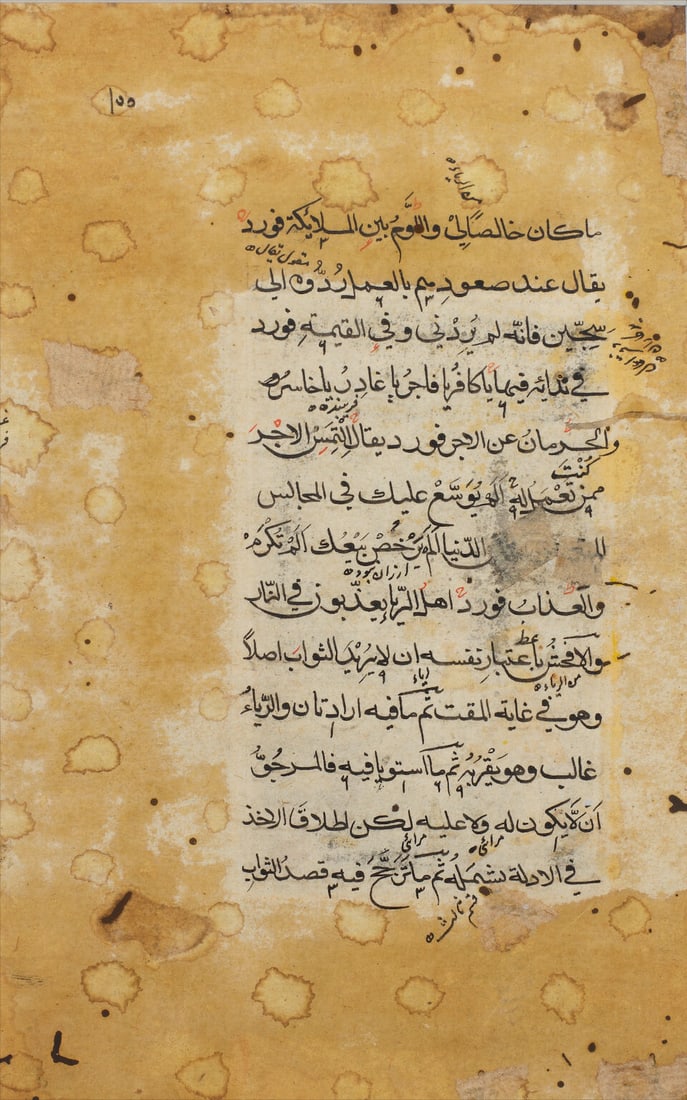 ١٥٥
من الرياء
ما كان خالصًا لِيْ واللَّوْمُ بين الملائكة فورد
مقول يقال
يقال عند صعودِهِم بالعمل رُدُّوه الى
سِجِّين فانّه لم يُرِدْني وفي القيمةِ فورد
في ندائه فيها يا كافر يا فاجر يا غادِر يا خاسر
والحِرْمان عن الاجر فورد يقال التَمِسْ الاجرَ
كُنْتَ
ممن تعمل له الم يُوَسَّعْ عليك في المجالس
الدنيا الم يُرَخَّصْ بَيْعُك الم تُكْرَمْ
ارزان نبوده
والعذاب فورد اهل الريا يعذّبون في النّار
والافحش باعتبار نفسه ان لا يريد الثواب اصلاً
من الرياء
وهو في غاية المقت ثم ما فيه ارادتان والرّياءُ
غالب وهو يَقْربُه ثم ما استويا فيه فالمرجوُّ
اَن لَّا يكون له ولا عليه لٰكن اطلاق الاخذ
في الادلة يشمله ثم ما ترَجَّحَ فيه قصد الثواب
قسم ثالث